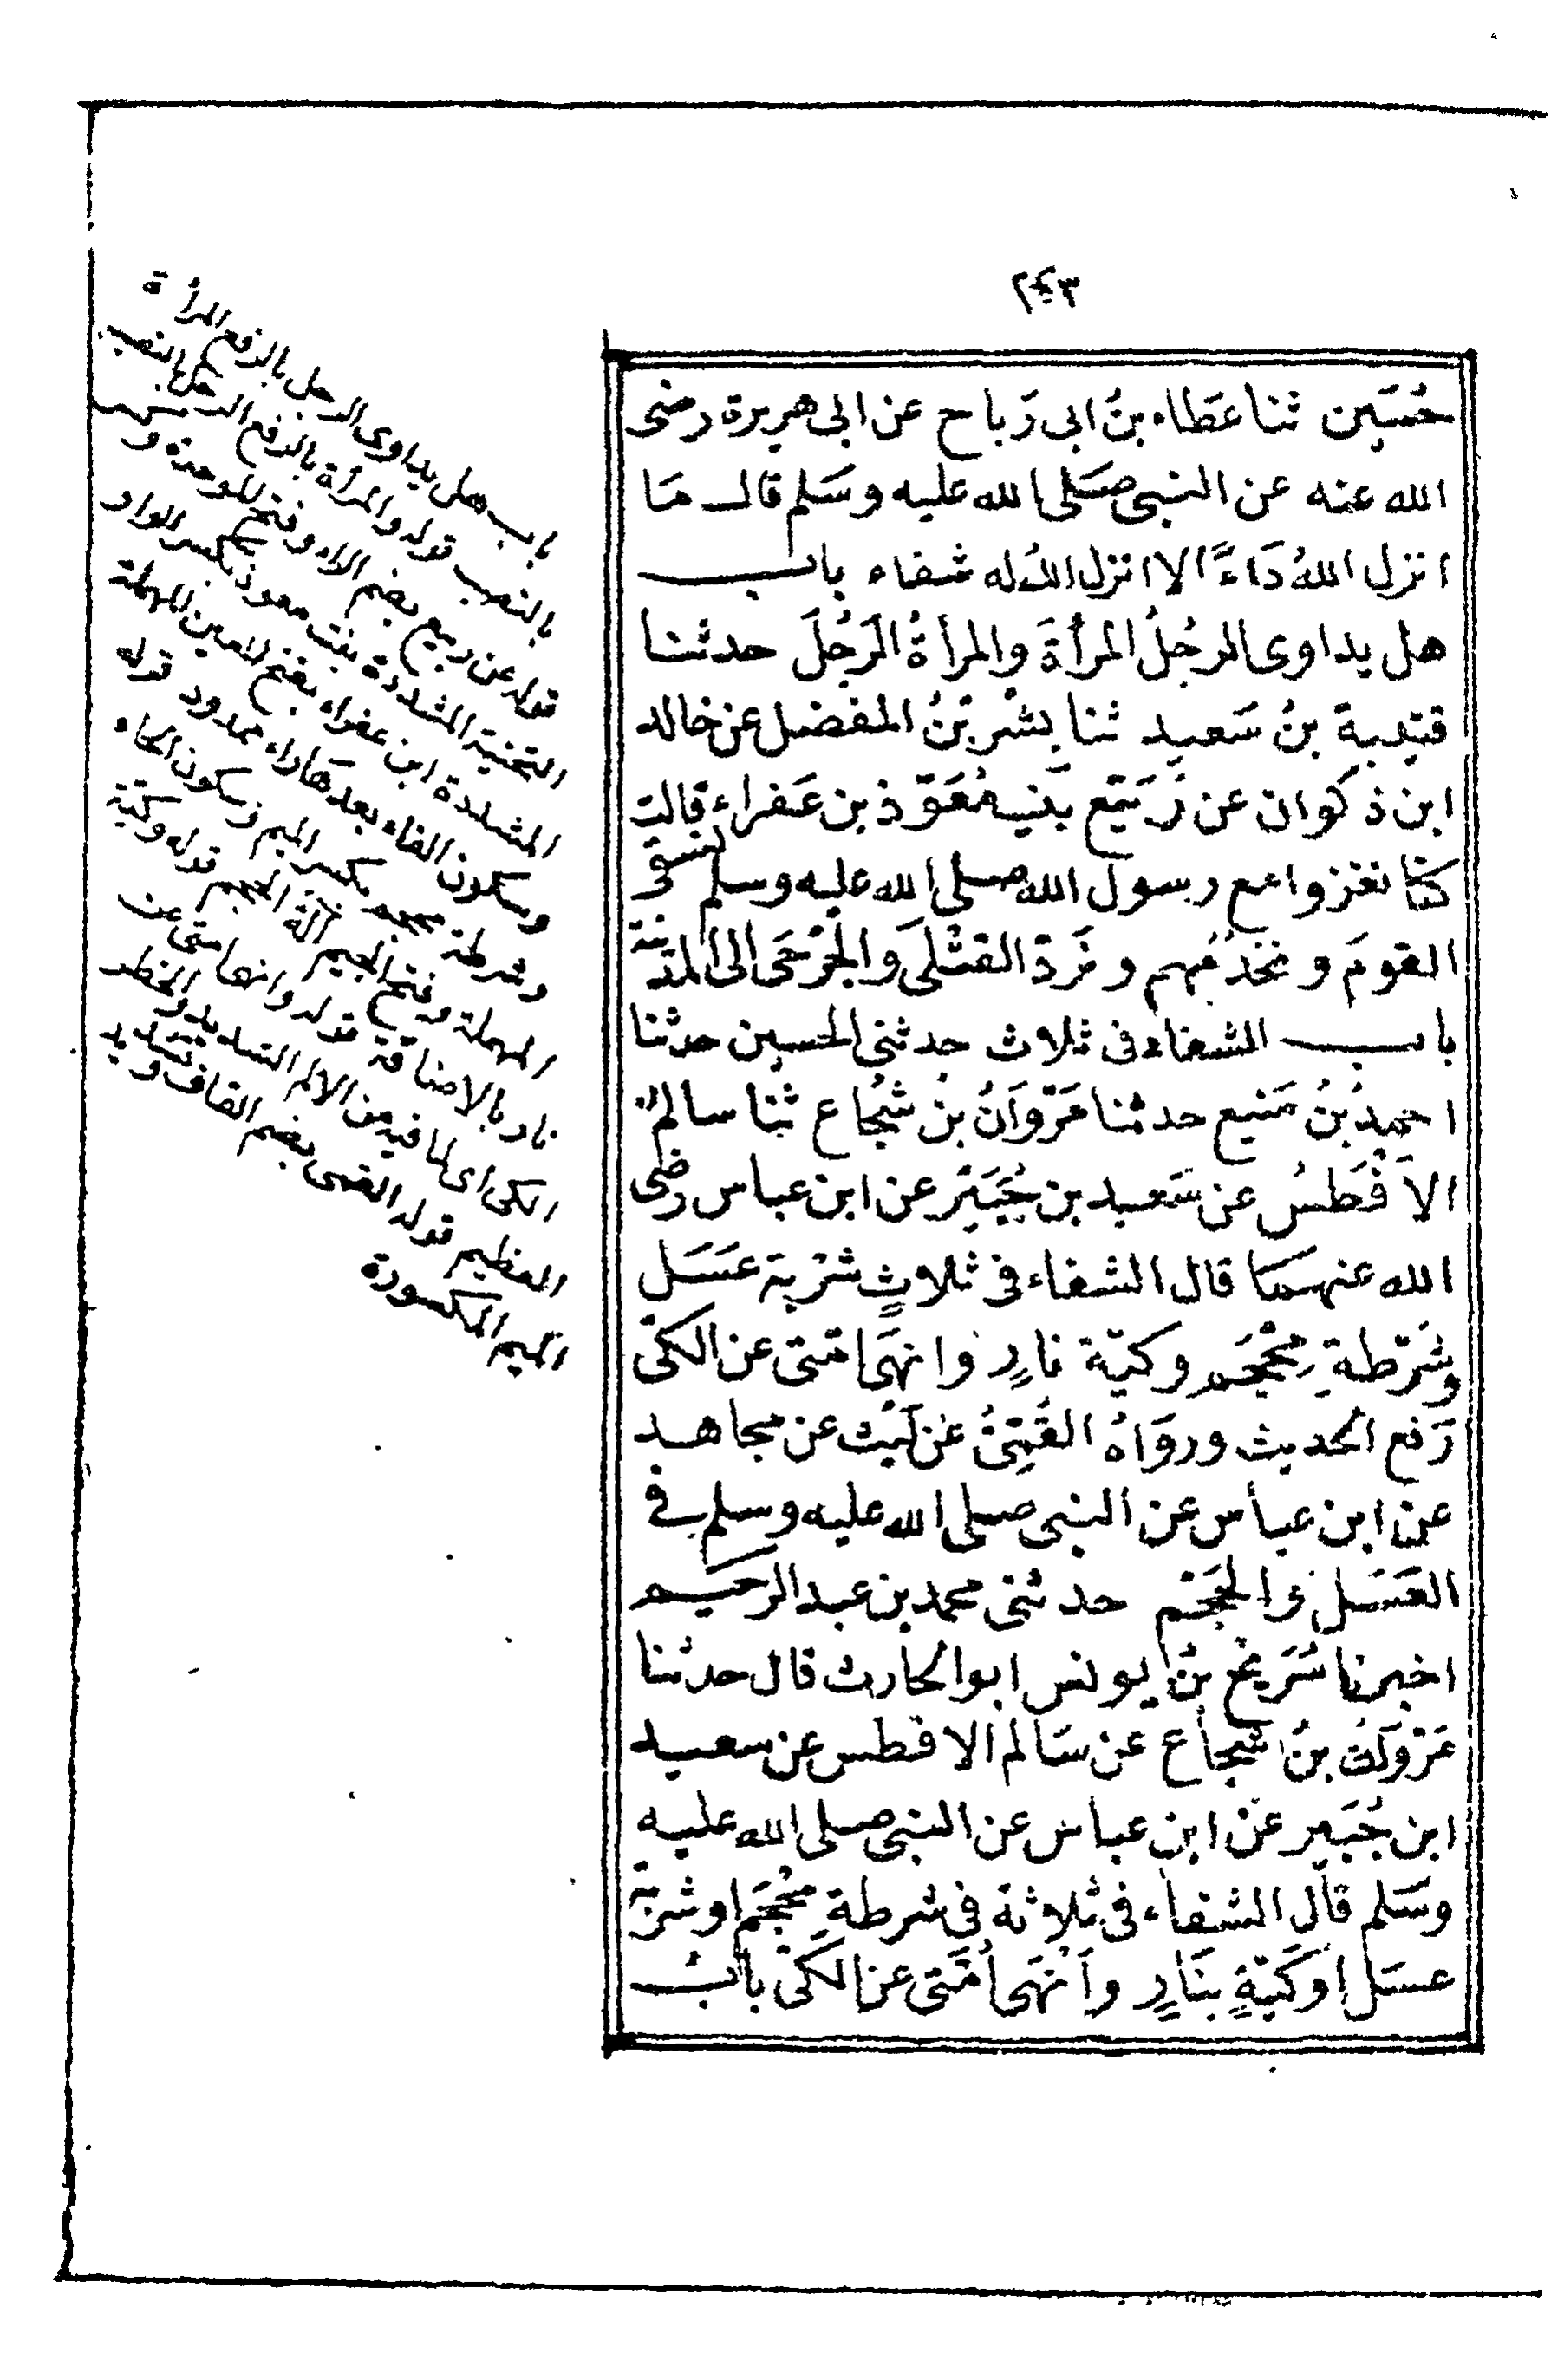 حُسَين ثنا عَطاء بنُ ابى رَباح عن ابى هريرة رضى
الله عنه عن النبى صَلى الله عليه وسَلم قال مَا
انزل اللهُ دَاءً الا انزل اللهُ له شفاء باب
هل يداوى الرجُلُ المرأةَ والمرأةُ الرَجُلَ حدثنا
قتيبة بنُ سَعيد ثنا بِشْر بْنُ المفضل عن خالد
ابن ذكوان عن رُبَيّع بنت مُعَوّذ بن عَفراء قالت
كنّا نغزوا مع رسول الله صلى الله عليه وسلم نسقى
القومَ ونخدُمُهم ونَردّ القتْلَى وَالجَرْحَى الى المدينة
باب الشفاء فى ثلاث حدثنى الحسين حدثنا
احمدُ بنُ مَنيع حدثنا مَرْوَانُ بنُ شُجُاع ثنا سالمٌ
الاَفْطَسُ عن سَعيد بن جُبَيْر عن ابن عباس رضى
الله عنهمَا قال الشفاء فى ثلاثٍ شرْبة عَسَل
وشَرْطةِ مِحْجَم وكيّة نارٍ وانهَى امّتى عن الكىّ
رَفع الحديث ورَوَاهُ القُمِّىُّ عن لَيْث عن مجاهد
عن ابن عباس عن النبى صلى الله عليه وسلم فى
العَسَل والحَجْم حدثنى محمد بن عبد الرحيم
اخبرنا سُرَيْج بنُ يونس ابو الحارث قال حدثنا
مَرْوَانُ بنُ شجاع عن سَالم الافطس عن سعيد
ابن جُبَير عنْ ابن عباس عن النبى صلى الله عليه
وسَلم قال الشفاء فى ثلاثة فى شرطةِ مِحْجَم او شربة
عسَل او كَيّةٍ بنَارٍ وأنْهَى أمّتى عن الكَىّ بابُ
باب هل يداوى الرجل بالرفع المرأة
بالنصب قوله والمرأة بالرفع الرجل بالنصب
قوله عن ربيع بضم الراء وفتح الموحدة و
التحتية المشددة بنت معوذ بكسر الواو
المشددة ابن عفراء بفتح العين المهملة
وسكون الفاء بعدها راء ممدود قوله
وشرطة محجم بكسر الميم وسكون الحاء
المهملة وفتح الجيم آلة الحجم قوله وكية
نار بالاضافة قوله وانهى امتى عن
الكى اى لما فيه من الالم الشديد والخطر
العظيم قوله القمى بضم القاف وتشديد
الميم المكسورة